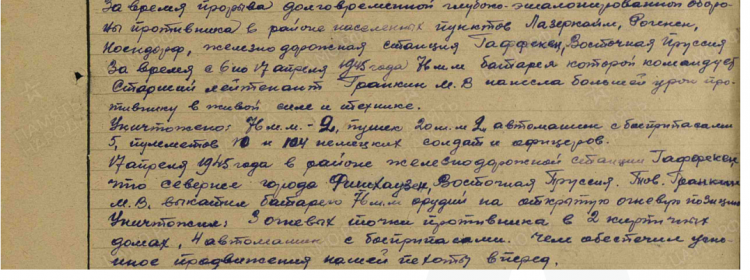 За время прорыва долговременной глубоко-эшалонированной оборо-
ны противника в районе населенных пунктов Лазеркайм, Рогенен,
Ноендорф, железно дорожная станция Гаффкен, Восточная Пруссия
За время с 6 по 17 апреля 1945 года 76 мм батарея которой командует
Старший лейтенант Гранкин М.В нанесла большей урон про-
тивнику в живой силе и технике.
Уничтожено: 76 м.м. - 2, пушек 20 м.м 2, автомашин с боеприпасами
5, пулеметов 10 и 104 немецких солдат и офицеров.
17 апреля 1945 года в районе железнодорожной станции Гаффкен,
что севернее города Фишхаузен, Восточная Пруссия. Тов. Гранкин
М.В. выкатил батарею 76 м.м орудий на открытую огневую позицию
Уничтожил: 3 огневых точки противника в 2 кирпичных
домах, 4 автомашин с боеприпасами. Чем обеспечил успе-
шное продвижения нашей пехоты вперед.